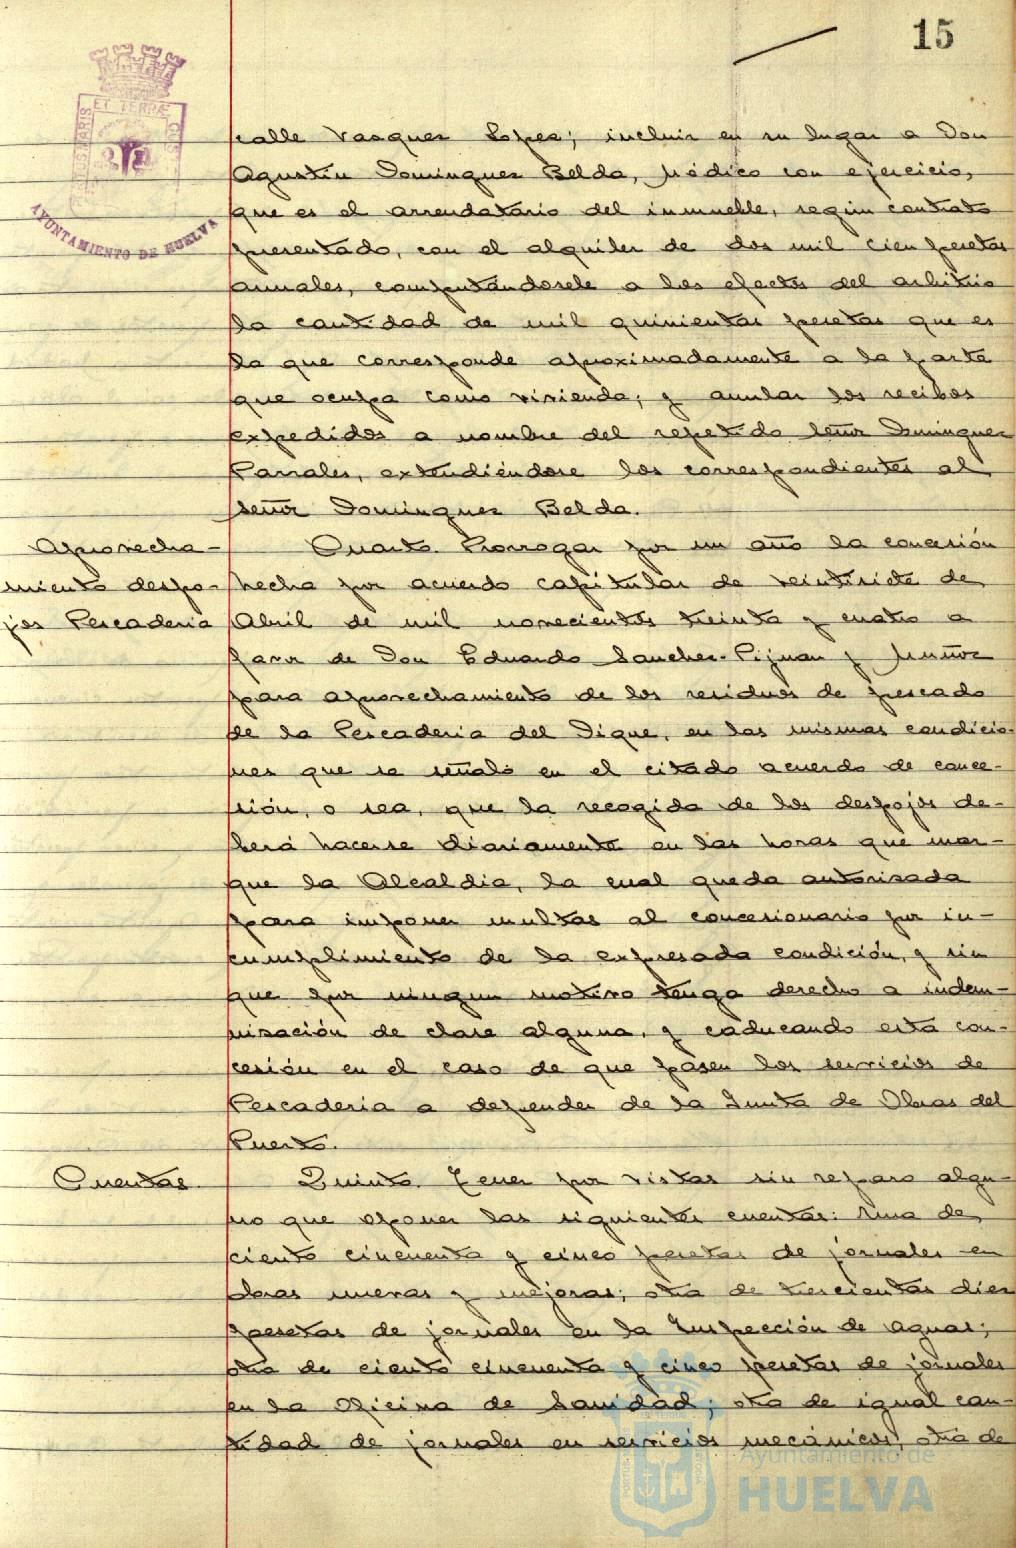 15
ET TERRÆ
AYUNTAMIENTO DE HUELVA
calle Vazquez Lopez; incluir en su lugar a Don
Agustín Dominguez Belda, Médico con ejercicio,
que es el arrendatario del inmueble, según contrato
presentado, con el alquiler de dos mil cien pesetas
anuales, computándosele a los efectos del arbitrio
la cantidad de mil quinientas pesetas que es
la que corresponde aproximadamente a la parte
que ocupa como vivienda; y anular los recibos
expedidos a nombre del repetido señor Dominguez
Parrales, extendiéndose los correspondientes al
señor Dominguez Belda.
Aprovecha-
miento despo-
jos Pescaderia
Cuarto. Prorrogar por un año la concesión
hecha por acuerdo capitular de veintisiete de
Abril de mil novecientos treinta y cuatro a
favor de Don Eduardo Sanchez-Pijuan y Muñoz
para aprovechamiento de los residuos de pescado
de la Pescaderia del Dique, en las mismas condicio-
nes que se señaló en el citado acuerdo de conce-
sión, o sea, que la recogida de los despojos de-
berá hacerse diariamente en las horas que mar-
que la Alcaldia, la cual queda autorizada
para imponer multas al concesionario por in-
cumplimiento de la expresada condición, y sin
que por ningun motivo tenga derecho a indem-
nización de clase alguna, y caducando esta con-
cesión en el caso de que pasen los servicios de
Pescaderia a depender de la Junta de Obras del
Puerto.
Cuentas.
Quinto. Tener por vistas sin reparo algu-
no que oponer las siguientes cuentas: Una de
ciento cincuenta y cinco pesetas de jornales en
obras nuevas y mejoras; otra de trescientas diez
pesetas de jornales en la Inspección de aguas;
otra de ciento cincuenta y cinco pesetas de jornales
en la Oficina de Sanidad; otra de igual can-
tidad de jornales en servicios mecánicos; otra de
Ayuntamiento de
HUELVA